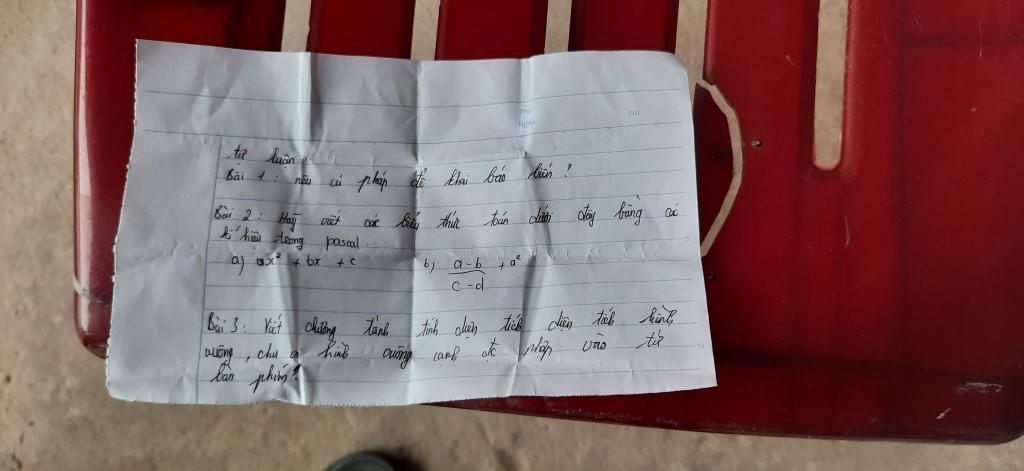 Thứ
Ngày No.
tự luận
Bài 1: nêu cú pháp để khai báo biến?
Bài 2: Hãy viết các biểu thức toán dưới đây bằng các
kí hiệu trong pascal.
a) ax² + bx + c b) \frac{a-b}{c-d} + a²
Bài 3: Viết chương trình tính diện tích diện tích hình
vuông, chu vi hình vuông cạnh đc nhập vào từ
bàn phím?